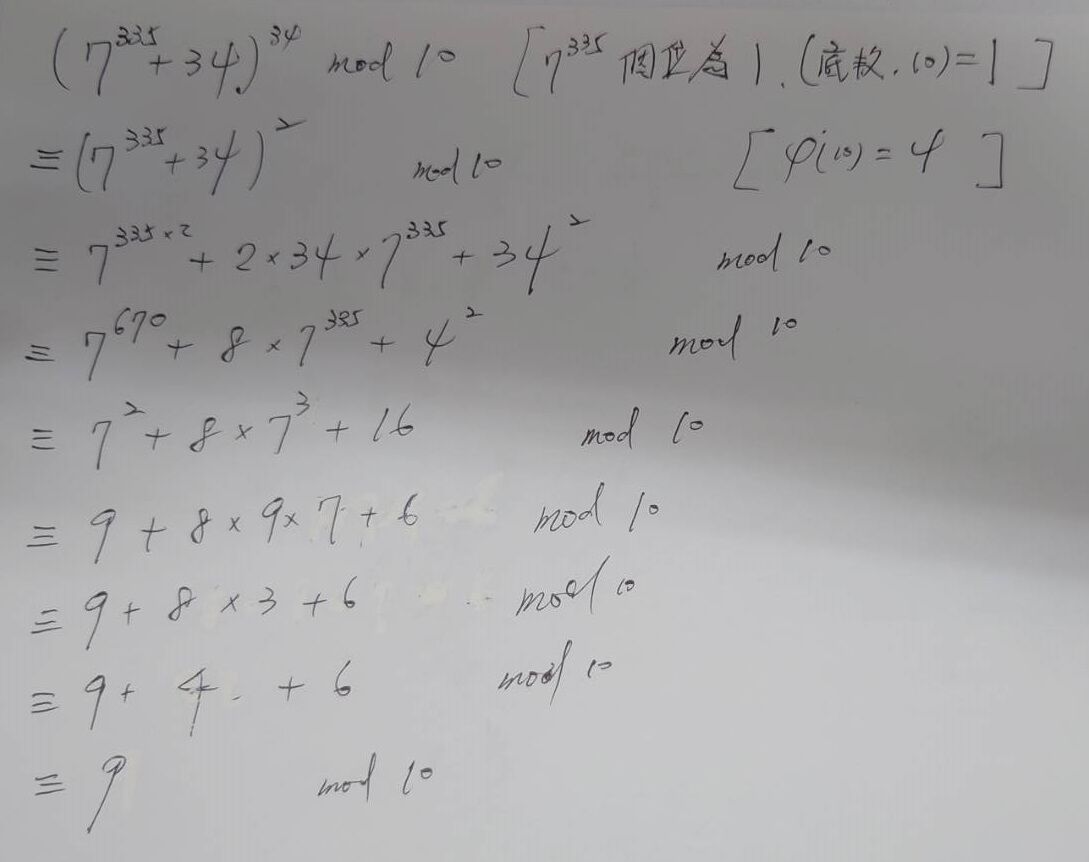 (7^335 + 34)^34 mod 10 [7^335 個位為 1, (底數, 10) = 1]
≡ (7^335 + 34)^2 mod 10 [φ(10) = 4]
≡ 7^335×2 + 2 × 34 × 7^335 + 34^2 mod 10
≡ 7^670 + 8 × 7^335 + 4^2 mod 10
≡ 7^2 + 8 × 7^3 + 16 mod 10
≡ 9 + 8 × 9 × 7 + 6 mod 10
≡ 9 + 8 × 3 + 6 mod 10
≡ 9 + 4 + 6 mod 10
≡ 9 mod 10